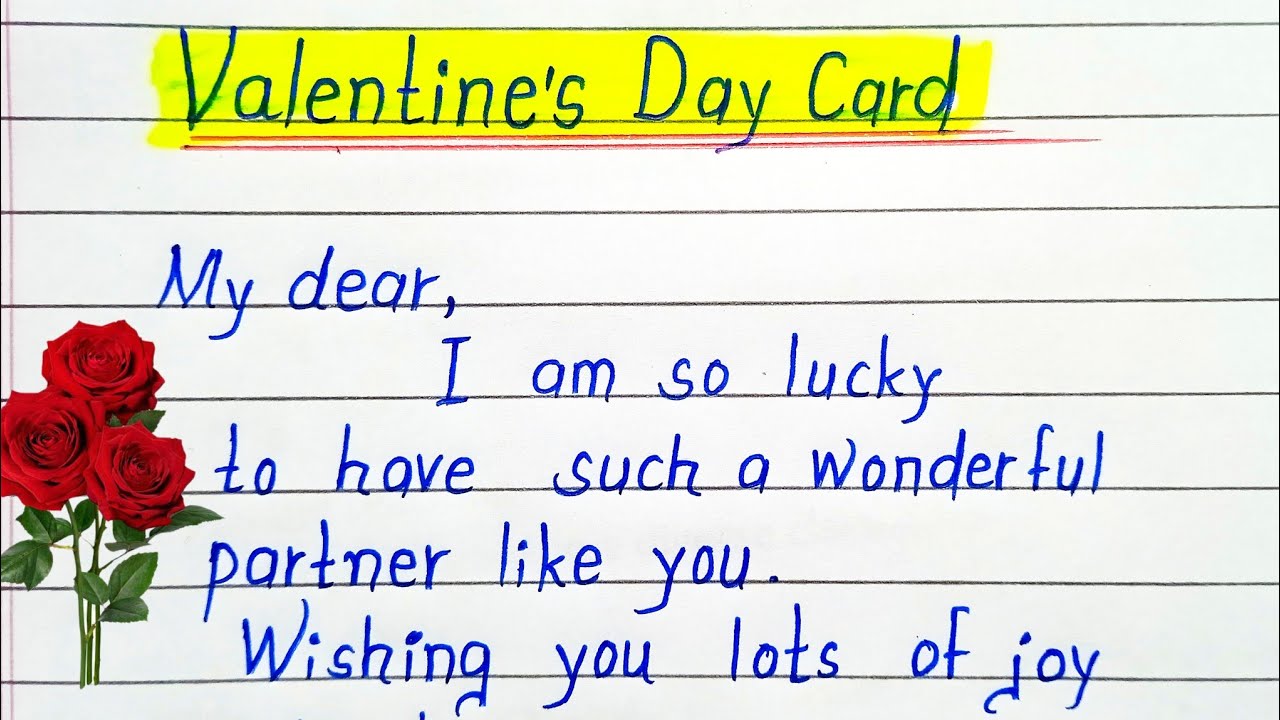 Valentine's Day Card
My dear,
I am so lucky
to have such a wonderful
partner like you.
Wishing you lots of joy